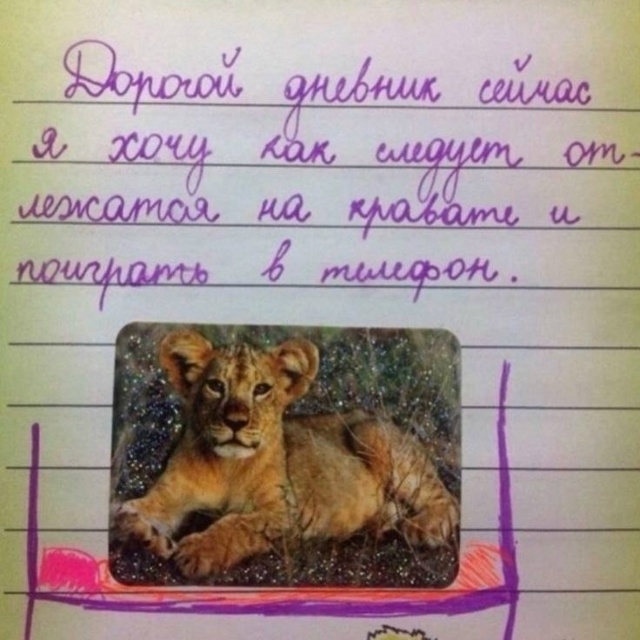 Дорогой дневник сейчас
я хочу как следует от-
лежатся на кравате и
поиграть в телефон.